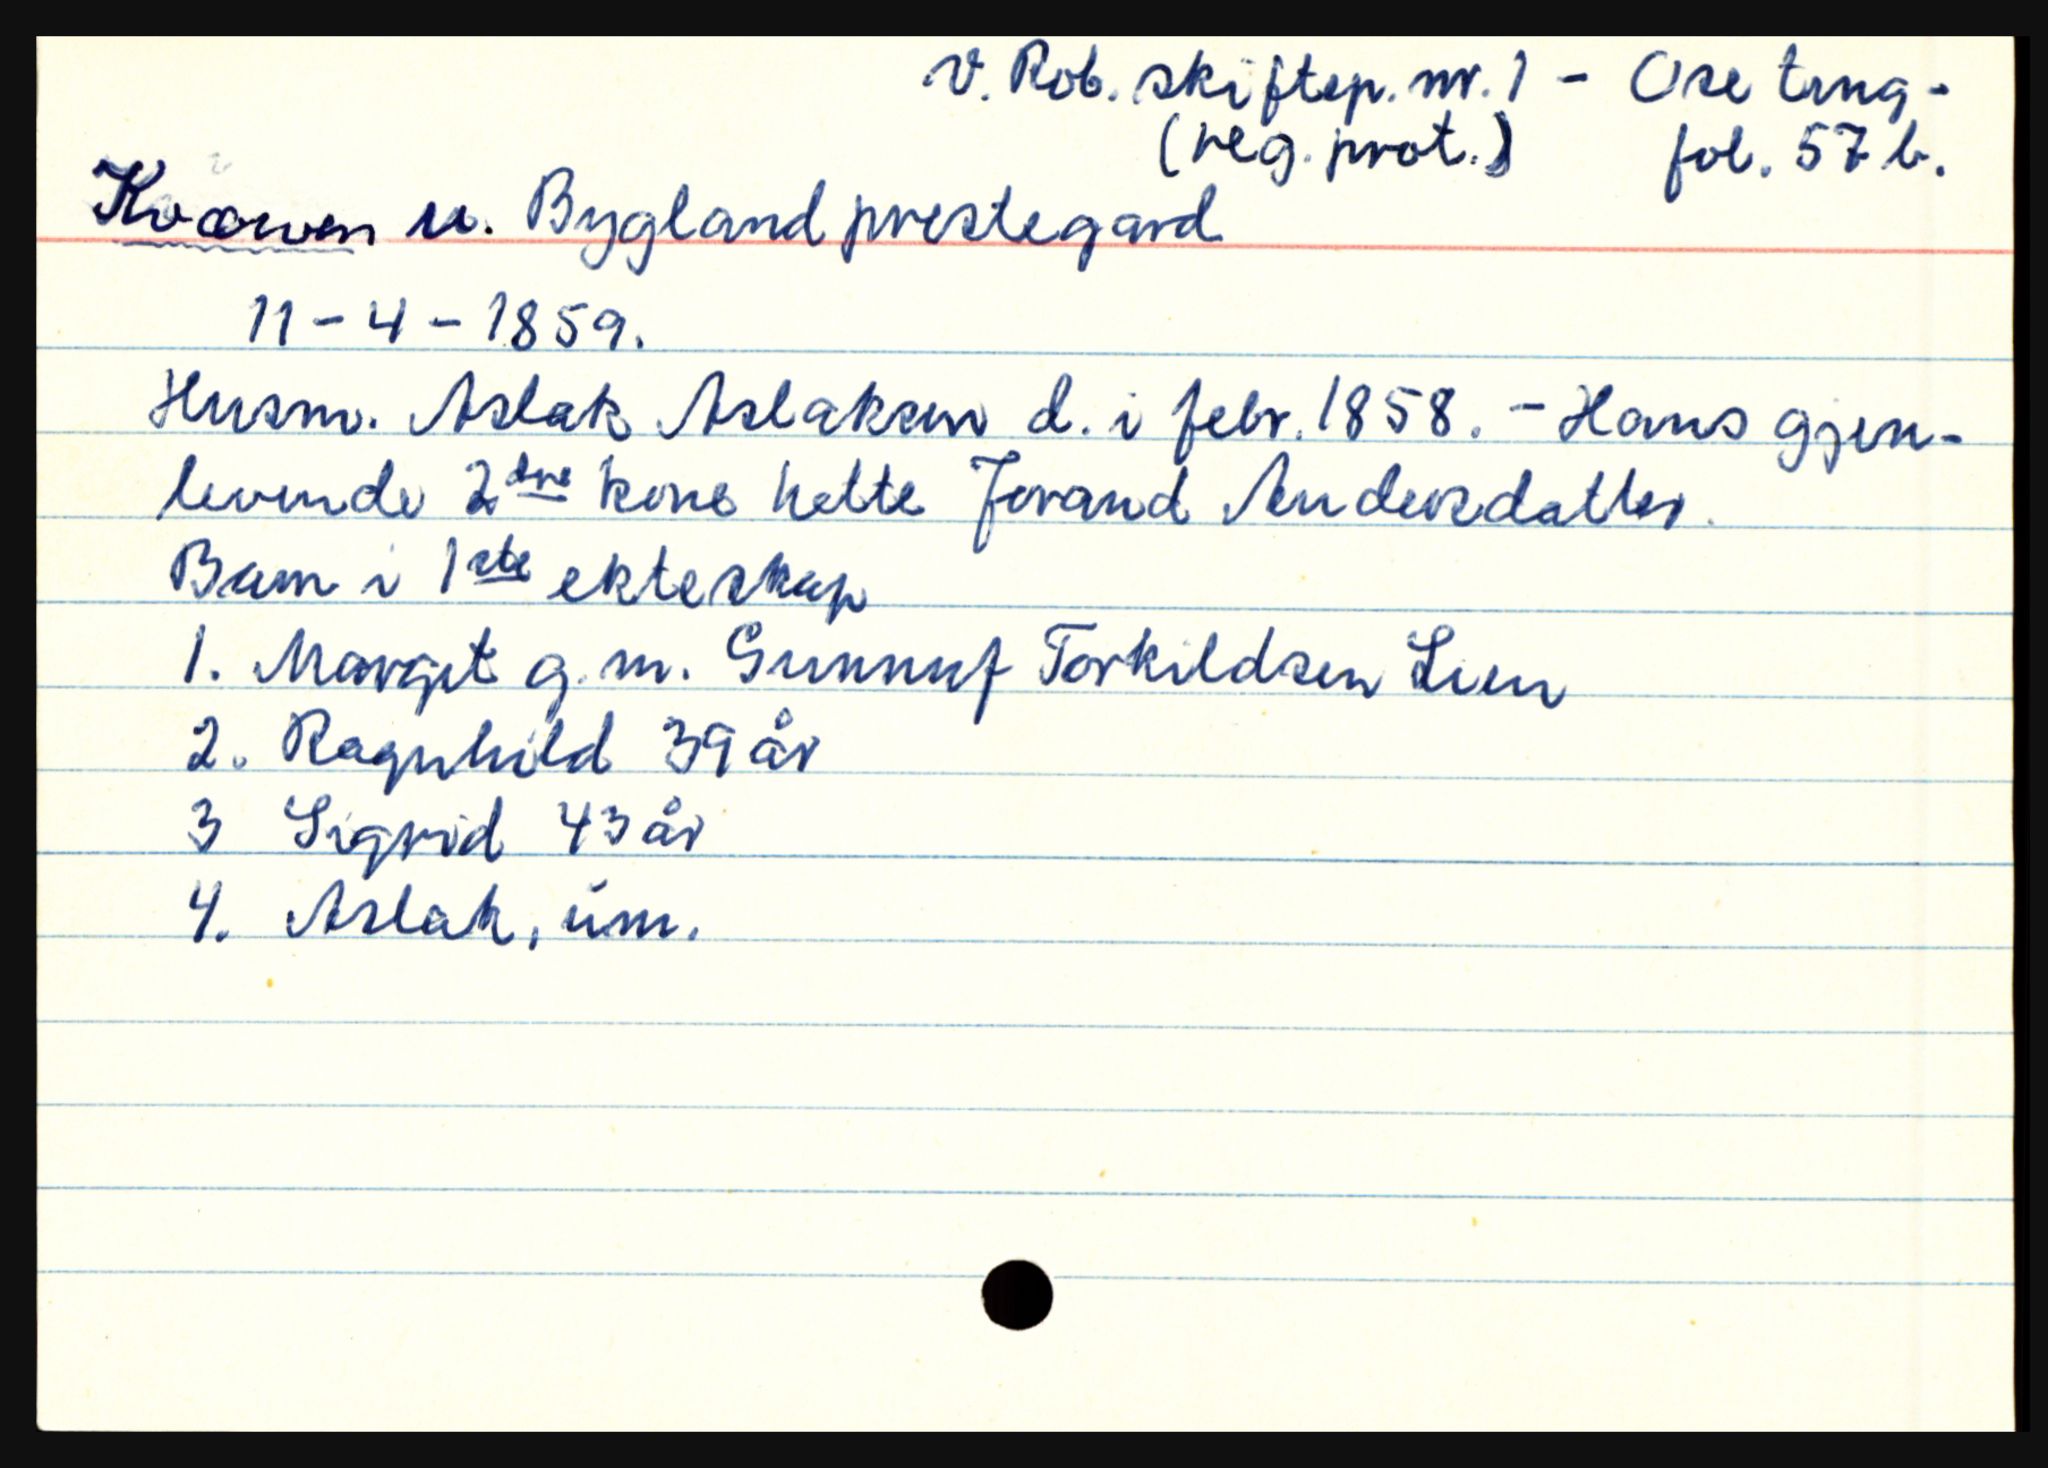 V. Rob. skiftep. nr. 1 - Ose ting-
(reg. prot.) fol. 57 b.
Kværven u. Bygland prestegard
11-4-1859.
Husm. Aslak Aslaksen d. i febr. 1858. - Hans gjen-
levende 2dre kone hette Jorand Andersdatter.
Barn i 1ste ekteskap
1. Margit g.m. Gunnuf Torkildsen Lien
2. Ragnhild 39 år
3 Sigrid 43 år
4. Aslak, um.